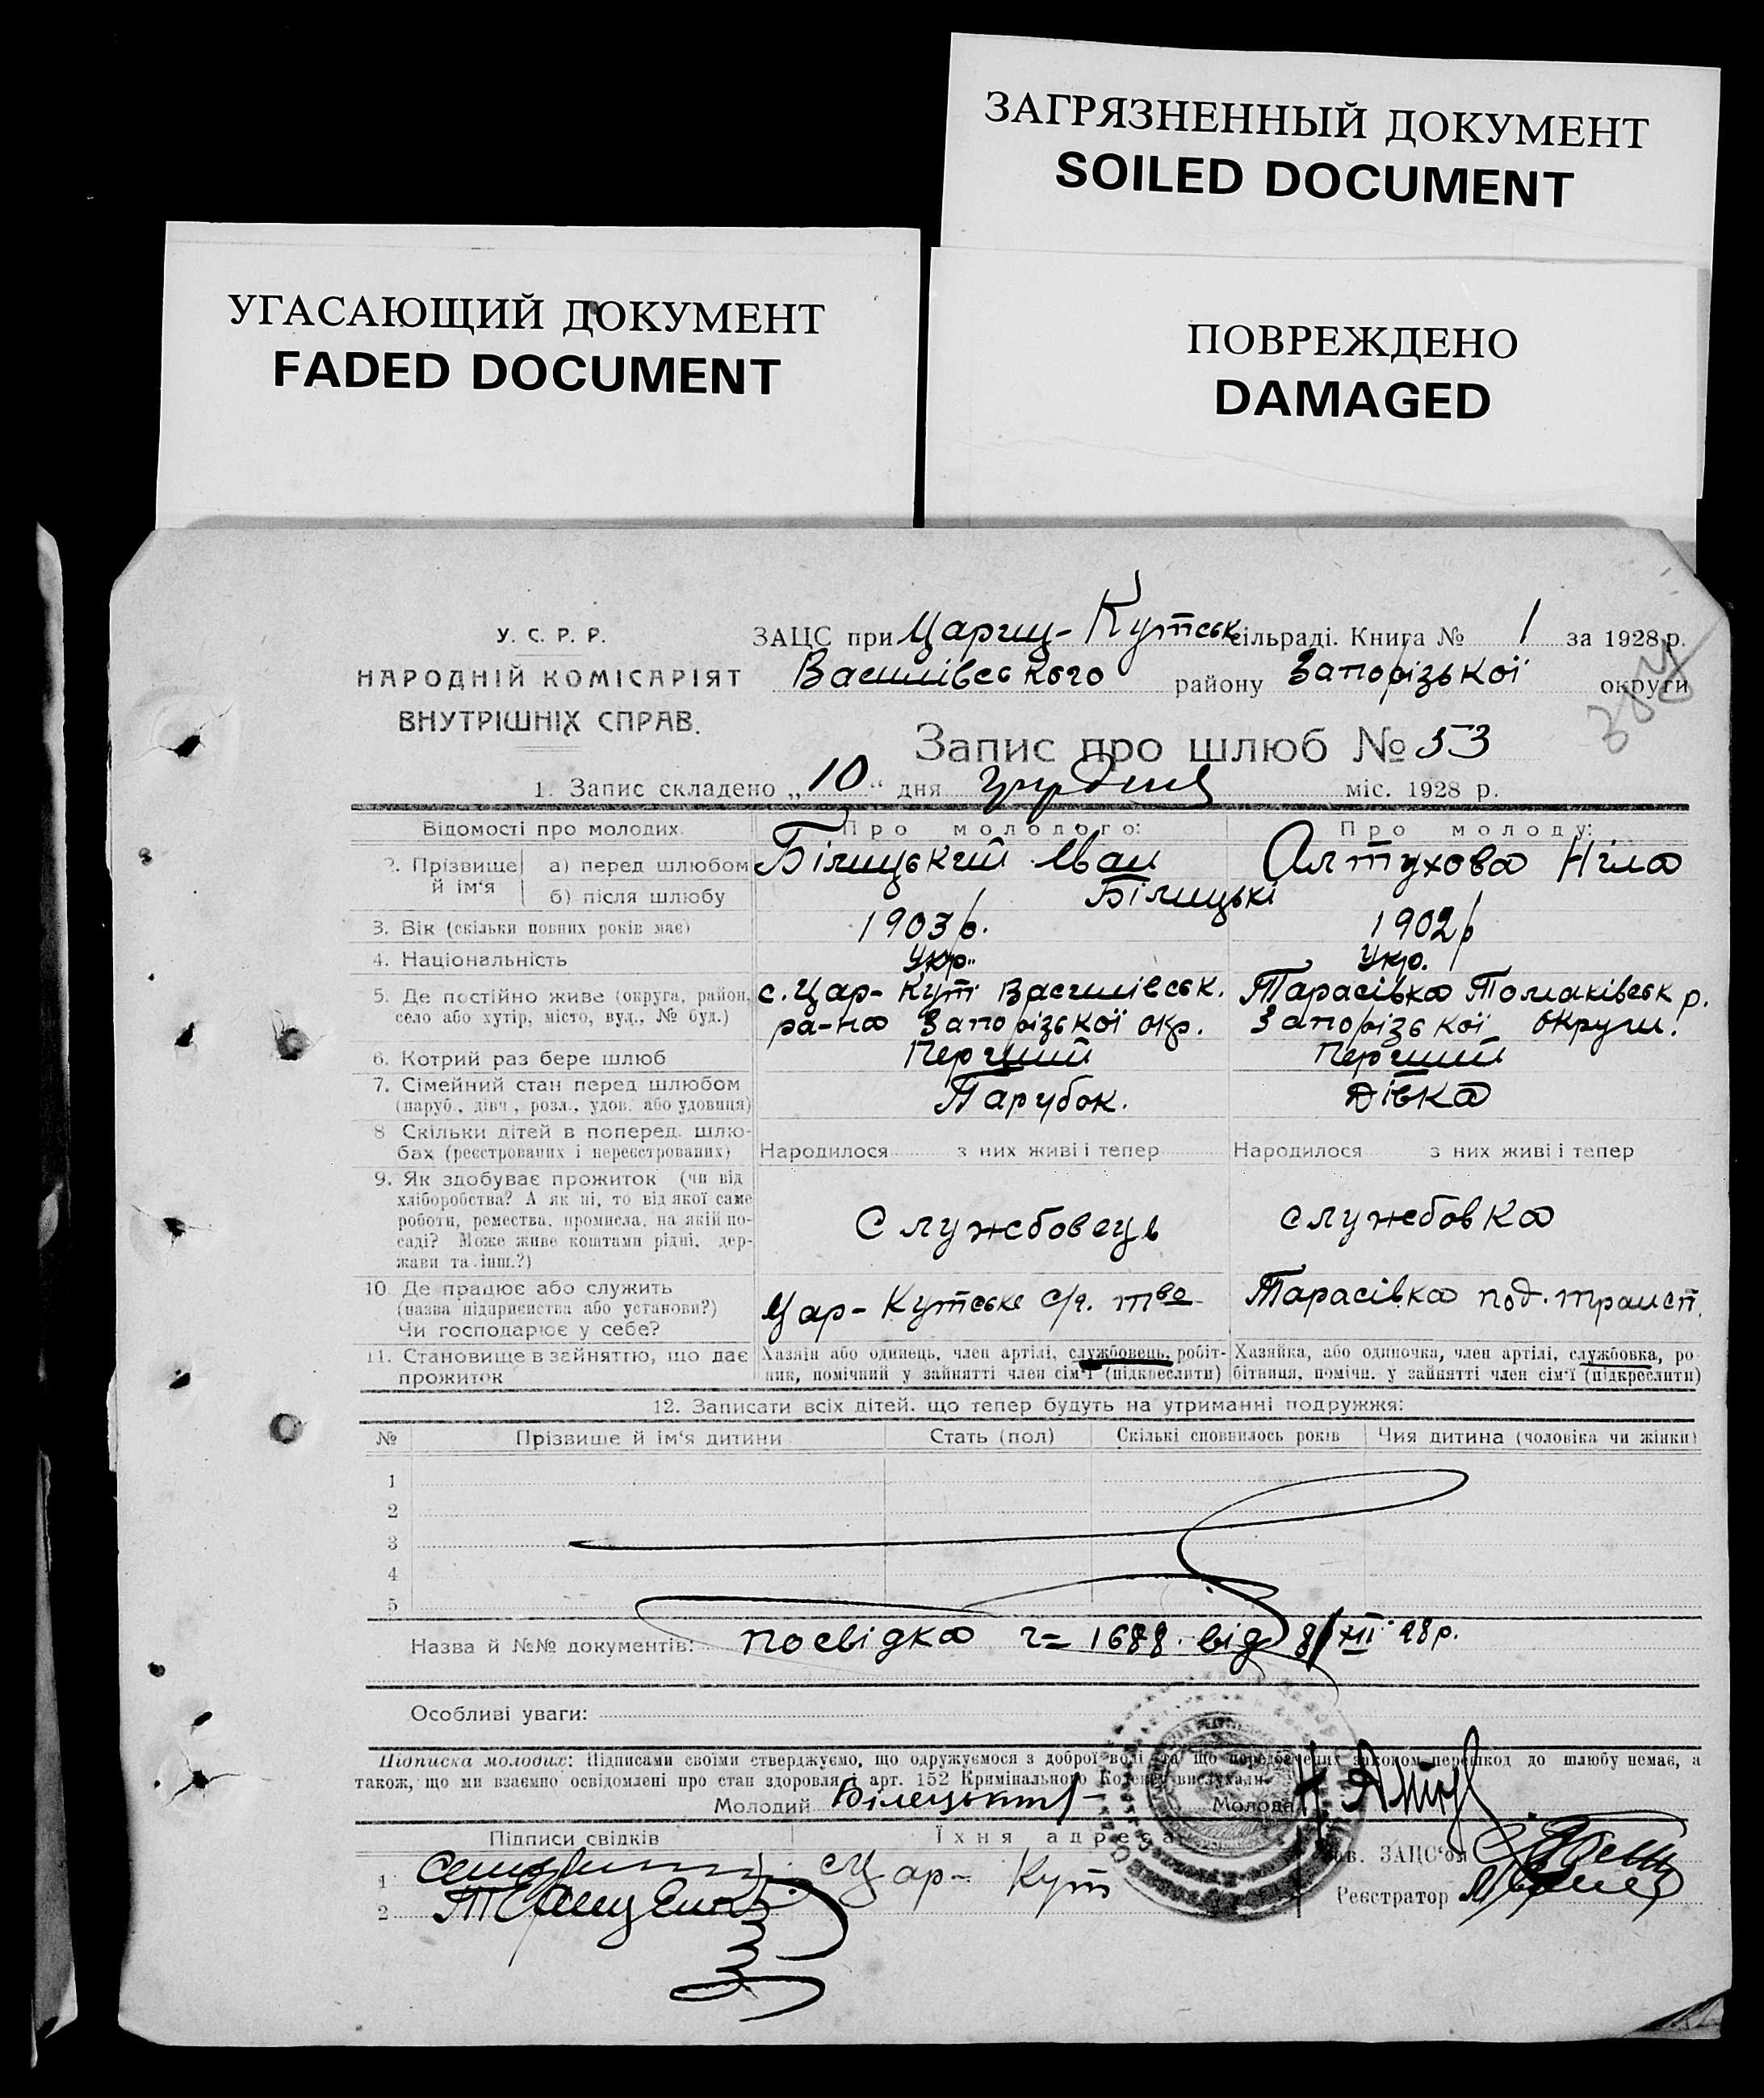 ЗАГРЯЗНЕННЫЙ ДОКУМЕНТ
SOILED DOCUMENT
УГАСАЮЩИЙ ДОКУМЕНТ
FADED DOCUMENT
ПОВРЕЖДЕНО
DAMAGED
У. С. Р. Р.
НАРОДНІЙ КОМІСАРІЯТ
ВНУТРІШНІХ СПРАВ.
ЗАЦС при Цариц-Кутськ сільраді. Книга № 1 за 1928 р.
Василівського району Запорізької округи
Запис про шлюб № 53
1. Запис складено „10“ дня грудня міс. 1928 р.
Відомості про молодих. Про молодого: Про молоду:
2. Прізвище й ім‘я а) перед шлюбом Білицький Іван Алтухова Ніла
б) після шлюбу Білицькі
3. Вік (скільки повних років має) 1903 р. 1902 р
4. Національність Укр. Укр.
5. Де постійно живе (округа, район, с. Цар-Кут Василівськ. Тарасівка Томаківськ р.
село або хутір, місто, вул., № буд.) ра-на Запорізької окр. Запорізької округи.
6. Котрий раз бере шлюб Перший Перший
7. Сімейний стан перед шлюбом Парубок. Дівка
(паруб., дівч., розл., удов. або удовиця)
8 Скільки дітей в поперед. шлю-
бах (реєстрованих і нереєстрованих) Народилося з них живі і тепер Народилося з них живі і тепер
9. Як здобуває прожиток (чи від
хліборобства? А як ні, то від якої саме
роботи, ремества, промисла, на якій по-
саді? Може живе коштами рідні, дер-
жави та інш.?) Службовець службовка
10. Де працює або служить
(назва підприємства або установи?) Цар-Кутське с/г. тво Тарасівка под. трансп.
Чи господарює у себе?
11. Становище в зайняттю, що дає Хазяїн або одинець, член артілі, службовець, робіт- Хазяйка, або одиночка, член артілі, службовка, ро
прожиток ник, помічний у зайнятті член сім‘ї (підкреслити) бітниця, помічн. у зайнятті член сім‘ї (підкреслити)
12. Записати всіх дітей, що тепер будуть на утриманні подружжя:
№ Прізвище й ім‘я дитини Стать (пол) Скількі сповнилось років Чия дитина (чоловіка чи жінки)
1
2
3
4
5
Назва й №№ документів: посвідка ч= 1688. від 8/XII 28 р.
Особливі уваги:
Підписка молодих: Підписами своїми стверджуємо, що одружуємося з доброї волі та що передбачених законом перешкод до шлюбу немає, а
також, що ми взаємно освідомлені про стан здоровля і арт. 152 Кримінального Кодексу вислухали
Молодий Білецький Молода
Підписи свідків Їхня адреса
1 с Цар-Кут Зав. ЗАЦС‘ом
2 Реєстратор